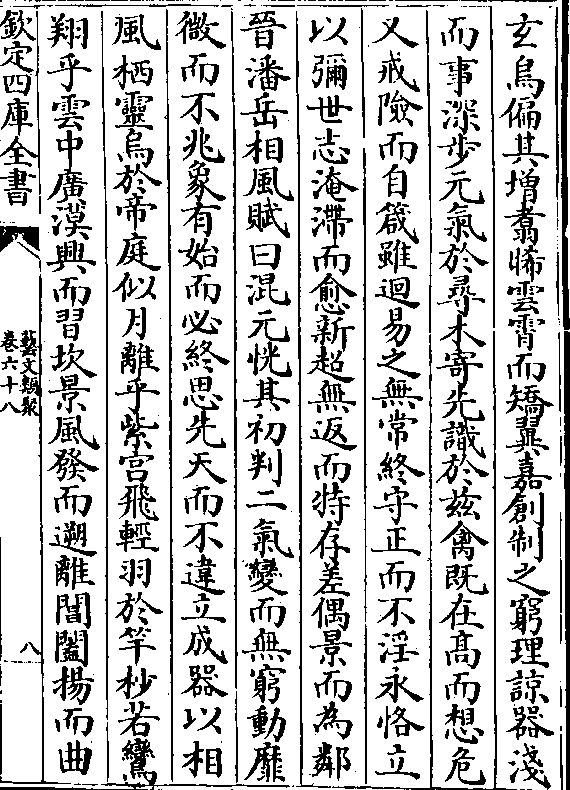 玄烏偏其增翥睎雲霄而矯翼嘉創制之窮理諒器淺
而事深步元氣於尋木寄先識於兹禽既在高而想危
又戒險而自箴雖迴易之無常終守正而不淫永恪立
以彌世志淹滯而愈新超無返而特存差偶景而為鄰
晉潘岳相風賦曰混元恍其初判二氣變而無窮動靡
微而不兆象有始而必終思先天而不違立成器以相
風栖靈烏於帝庭似月離乎紫宫飛輕羽於竿杪若鸞
翔乎雲中廣漠興而習坎景風發而遡離閶闔揚而曲
欽定四庫全書
藝文類聚
卷六十八
八